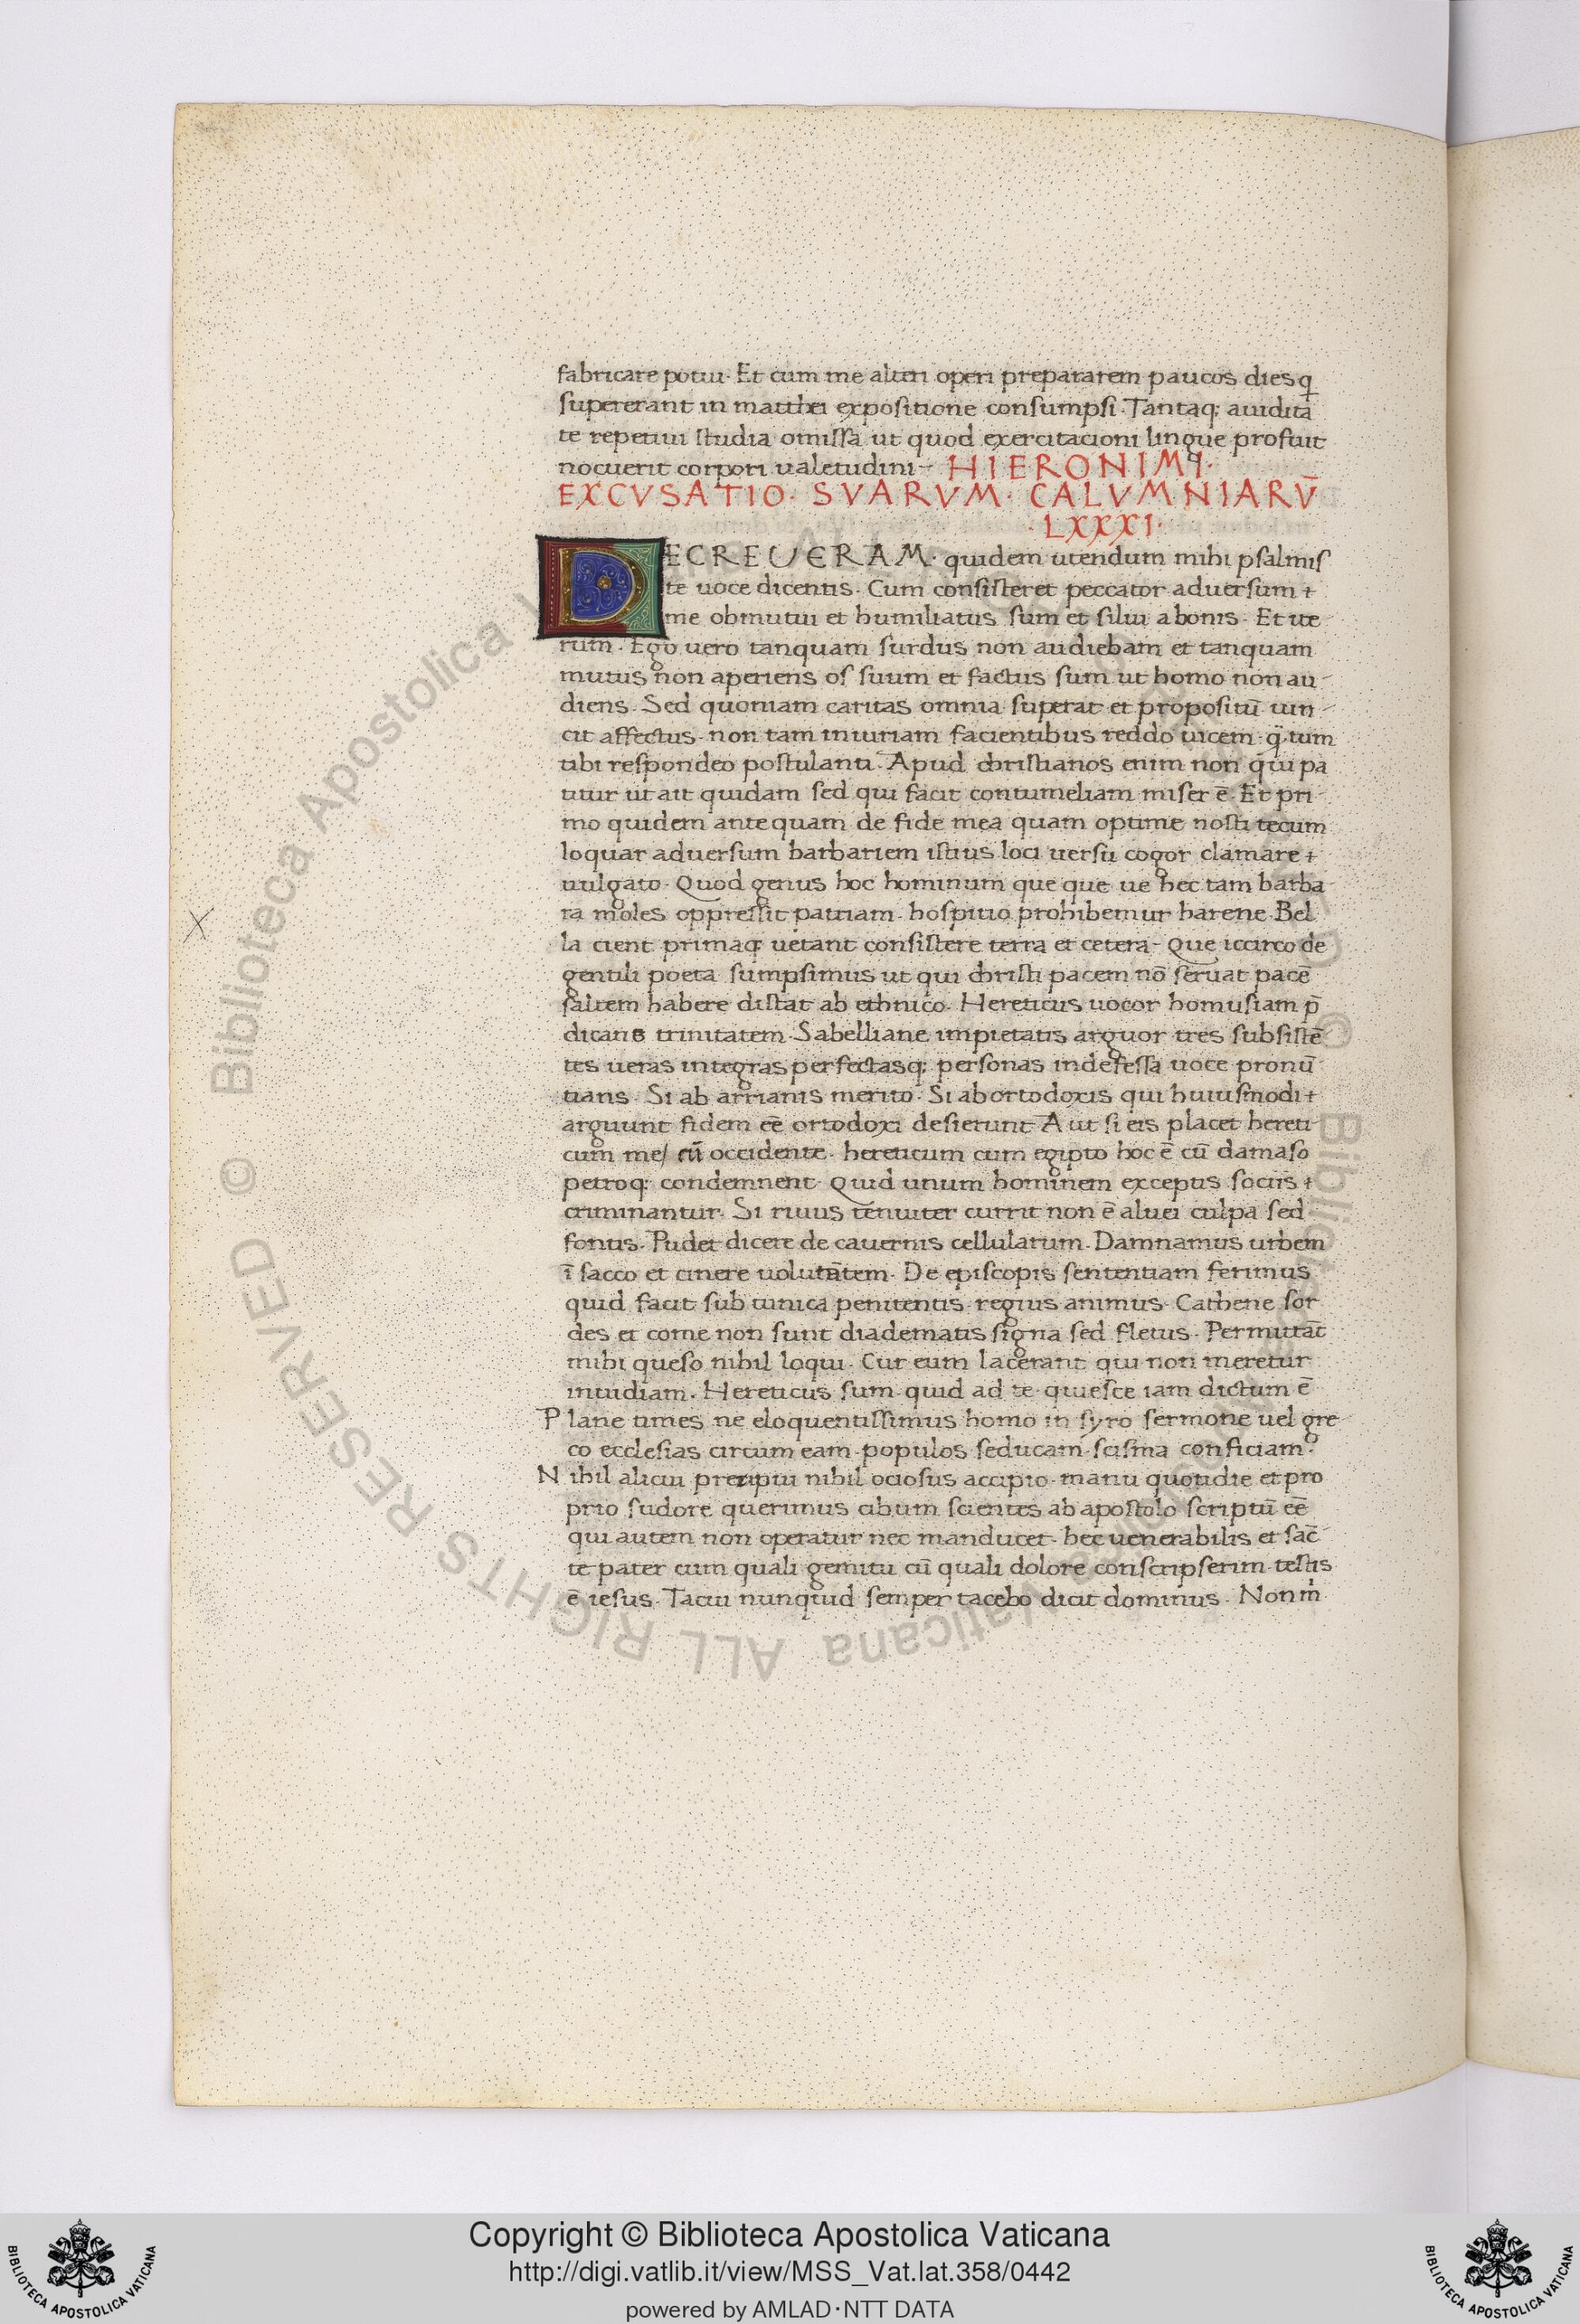 fabricare potui. Et cum me alteri operi prepararem paucos dies q
supererant in matthei expositione consumpsi. Tantaq; auidita
te repetiui studia omissa ut quod exercitacioni lingue profuit
nocuerit corpori ualetudini- HIERONIMI.
EXCVSATIO. SVARVM. CALVMNIARV̄
.LXXXI.
DECREUERAM. quidem utendum mihi psalmis
te uoce dicentis. Cum consisteret peccator aduersum +
me obmutui et humiliatus sum et silui abonis. Et ite
rum. Ego uero tanquam surdus non audiebam et tanquam
mutus non aperiens os suum et factus sum ut homo non au-
diens. Sed quoniam caritas omnia superat et propositū uin-
cit affectus. non tam iniuriam facientibus reddo uicem. q̄ tum
tibi respondeo postulanti. Apud christianos enim non qui pa
titur ut ait quidam sed qui facit contumeliam miser ē. Et pri-
mo quidem ante quam de fide mea quam optime nosti tecum
loquar aduersum barbariem istius loci uersu cogor clamare +
uulgato. Quod genus hoc hominum que que ue hec tam barba-
ra moles oppressit patriam. hospitio prohibemur harene. Bel
la cient primaq; uetant consistere terra et cetera- Que iccirco de
gentili poeta sumpsimus ut qui christi pacem nō seruat pacē
saltem habere distat ab ethnico. Hereticus uocor homusiam p̄
dicans trinitatem. Sabelliane impietatis arguor tres subsistē
tes ueras integras perfectasq; personas indefessa uoce pronū
tians. Si ab arrianis merito. Si ab ortodoxis qui huiusmodi +
arguunt fidem eē ortodoxi desierunt. Aut si eis placet hereti-
cum me/ cū occidente. hereticum cum egipto hoc ē cū damaso
petroq; condemnent. Quid unum hominem exceptis sociis +
criminantur. Si riuus tenuiter currit non ē aluei culpa sed
fontis. Pudet dicere de cauernis cellularum. Damnamus urbem
ī sacco et cinere volutātem. De episcopis sententiam ferimus
quid facit sub tunica penitentis. regius animus. Cathene sor
des et come non sunt diadematis signa sed fletus. Permittāt
mihi queso nihil loqui. Cur eum lacerant qui non meretur
inuidiam. Hereticus sum. quid ad te. quiesce iam dictum ē
Plane times ne eloquentissimus homo in syro sermone uel gre-
co ecclesias circum eam. populos seducam. scisma conficiam.
Nihil alicui preripui nihil ociosus accipio. manu quotidie et pro
prio sudore querimus cibum scientes ab apostolo scriptū eē
qui autem non operatur nec manducet. hec uenerabilis et sāc-
te pater cum quali gemitu cū quali dolore conscripserim. testis
ē iesus. Tacui nunquid semper tacebo dicit dominus. Non m̄
Copyright © Biblioteca Apostolica Vaticana
http://digi.vatlib.it/view/MSS_Vat.lat.358/0442
powered by AMLAD·NTT DATA